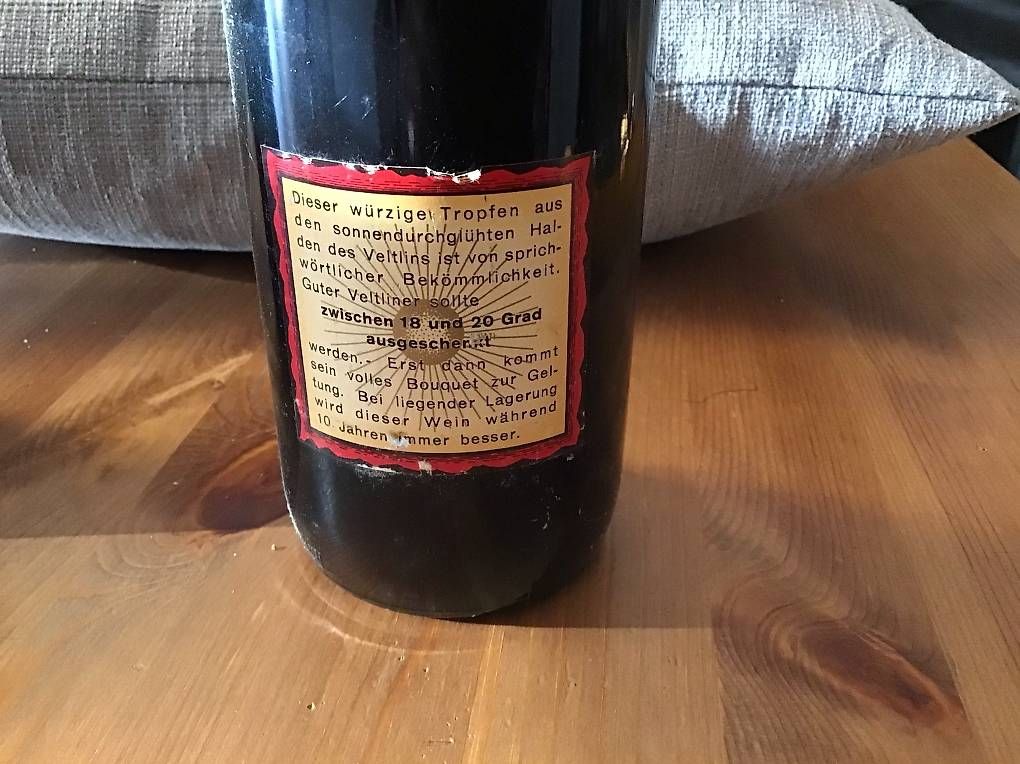 Dieser würziger Tropfen aus
den sonnendurchglühten Hal-
den des Veltlins ist von sprich-
wörtlicher Bekömmlichkeit.
Guter Veltliner sollte
zwischen 18 und 20 Grad
ausgeschenkt
werden.- Erst dann kommt
sein volles Bouquet zur Gel-
tung. Bei liegender Lagerung
wird dieser Wein während
10 Jahren immer besser.